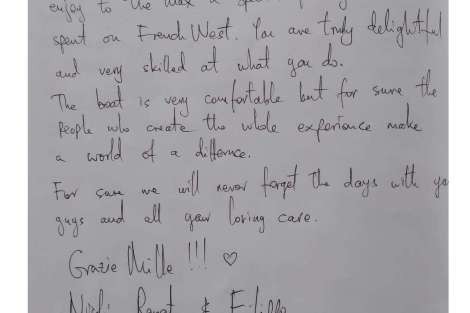 enjoy to the max a
spent on French West. You are truly delightful
and very skilled at what you do.
The boat is very comfortable but for sure the
People who create the whole experience make
a world of a difference.
For sure we will never forget the days with yo
guys and all your loving care.
Grazie Mille !!! ♡
&